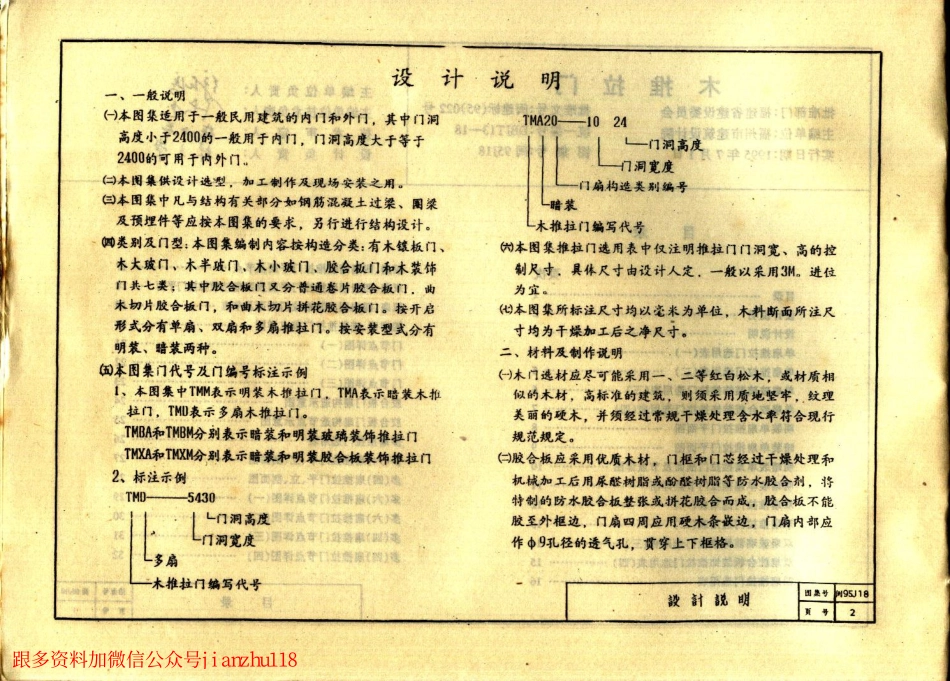 设计说明
一、一般说明
㈠本图集适用于一般民用建筑的内门和外门，其中门洞
高度小于2400的一般用于内门，门洞高度大于等于
2400的可用于内外门。
㈡本图集供设计选型，加工制作及现场安装之用。
㈢本图集中凡与结构有关部分如钢筋混凝土过梁、圈梁
及预埋件等应按本图集的要求，另行进行结构设计。
㈣类别及门型：本图集编制内容按构造分类：有木镶板门、
木大玻门、木半玻门、木小玻门、胶合板门和木装饰
门共七类；其中胶合板门又分普通卷片胶合板门，曲
木切片胶合板门，和曲木切片拼花胶合板门。按开启
形式分有单扇、双扇和多扇推拉门。按安装型式分有
明装、暗装两种。
㈤本图集门代号及门编号标注示例
1、本图集中TMM表示明装木推拉门，TMA表示暗装木推
拉门，TMD表示多扇木推拉门。
TMBA和TMBM分别表示暗装和明装玻璃装饰推拉门
TMXA和TMXM分别表示暗装和明装胶合板装饰推拉门
2、标注示例
TMD——5430
门洞高度
门洞宽度
多扇
木推拉门编写代号
TMA20——10 24
门洞高度
门洞宽度
门扇构造类别编号
暗装
木推拉门编写代号
㈥本图集推拉门选用表中仅注明推拉门门洞宽、高的控
制尺寸，具体尺寸由设计人定，一般以采用3M。进位
为宜。
㈦本图集所标注尺寸均以毫米为单位，木料断面所注尺
寸均为干燥加工后之净尺寸。
二、材料及制作说明
㈠木门选材应尽可能采用一、二等红白松木，或材质相
似的木材，高标准的建筑，则须采用质地坚牢，纹理
美丽的硬木，并须经过常规干燥处理含水率符合现行
规范规定。
㈡胶合板应采用优质木材，门框和门芯经过干燥处理和
机械加工后用尿醛树脂或酚醛树脂等防水胶合剂，将
特制的防水胶合板整张或拼花胶合而成，胶合板不能
胶至外框边，门扇四周应用硬木条嵌边，门扇内部应
作φ9孔径的透气孔，贯穿上下框格。
設計説明
图集号
闽95J18
页号
2
跟多资料加微信公众号jianzhu118